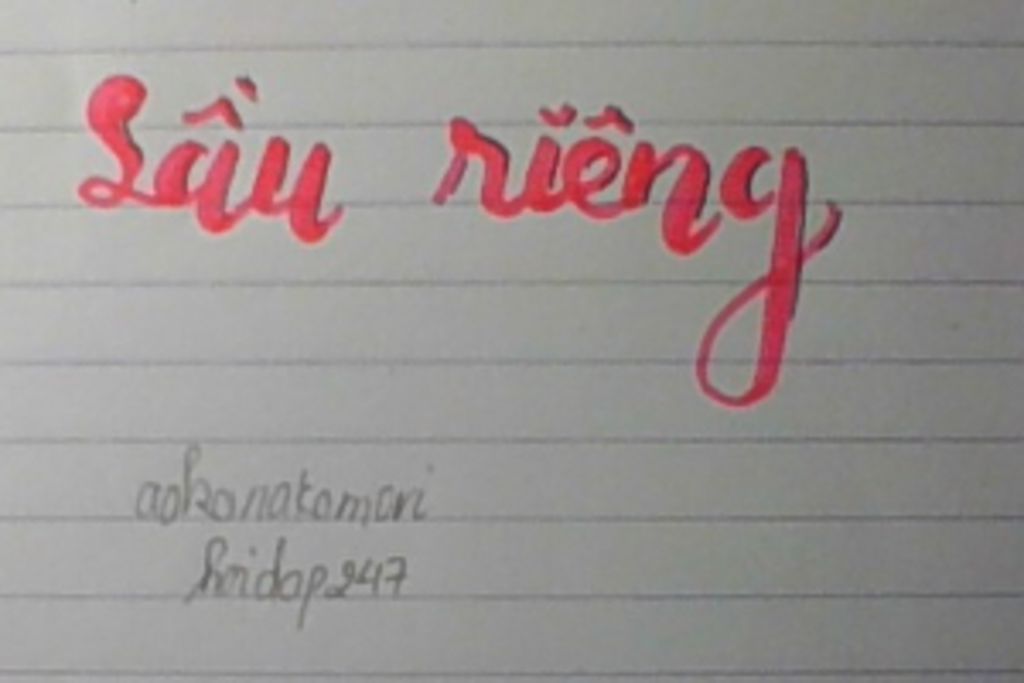 Sầu riêng
aokonakamori
hoidap247